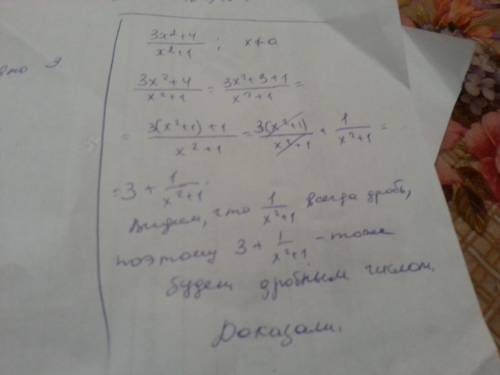 вно 9
(3x²+4)/(x²+1) ; x≠0
(3x²+4)/(x²+1) = (3x²+3+1)/(x²+1) =
= (3(x²+1)+1)/(x²+1) = 3(x²+1)/(x²+1) + 1/(x²+1) =
= 3 + 1/(x²+1).
Видим, что 1/(x²+1) всегда дробь,
поэтому 3 + 1/(x²+1) - тоже
будет дробным числом.
Доказали.